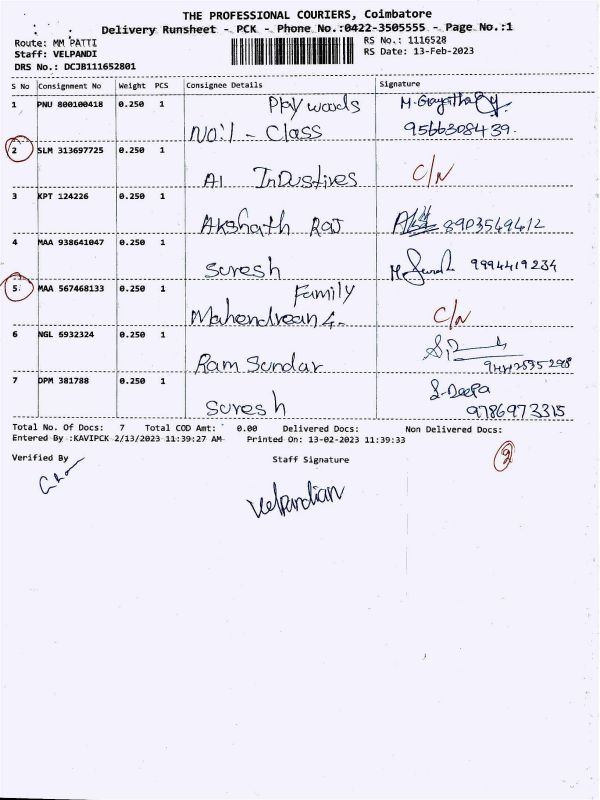 THE PROFESSIONAL COURIERS, Coimbatore
Delivery Runsheet - PCK - Phone No.:0422-3505555 - Page No.:1
Route: MM PATTI RS No.: 1116528
Staff: VELPANDI RS Date: 13-Feb-2023
DRS No.: DCJB111652801
S No Consignment No Weight PCS Consignee Details Signature
1 PNU 800100418 0.250 1 Plywoods M. Gayathri
No:1 - Class 9566308439.
2 SLM 313697725 0.250 1
A1 InDustives C/N
3 KPT 124226 0.250 1
Akshath Raj 8903549412
4 MAA 938641047 0.250 1
Suresh 9994419234
5 MAA 567468133 0.250 1 Family
Mahendrean C/N
6 NGL 6932324 0.250 1
Ram Sundar
7 DPM 381788 0.250 1 S. Deepa
Suresh 9786973315
Total No. Of Docs: 7 Total COD Amt: 0.00 Delivered Docs: Non Delivered Docs:
Entered By :KAVIPCK 2/13/2023 11:39:27 AM Printed On: 13-02-2023 11:39:33
2
Verified By Staff Signature
Velpandian